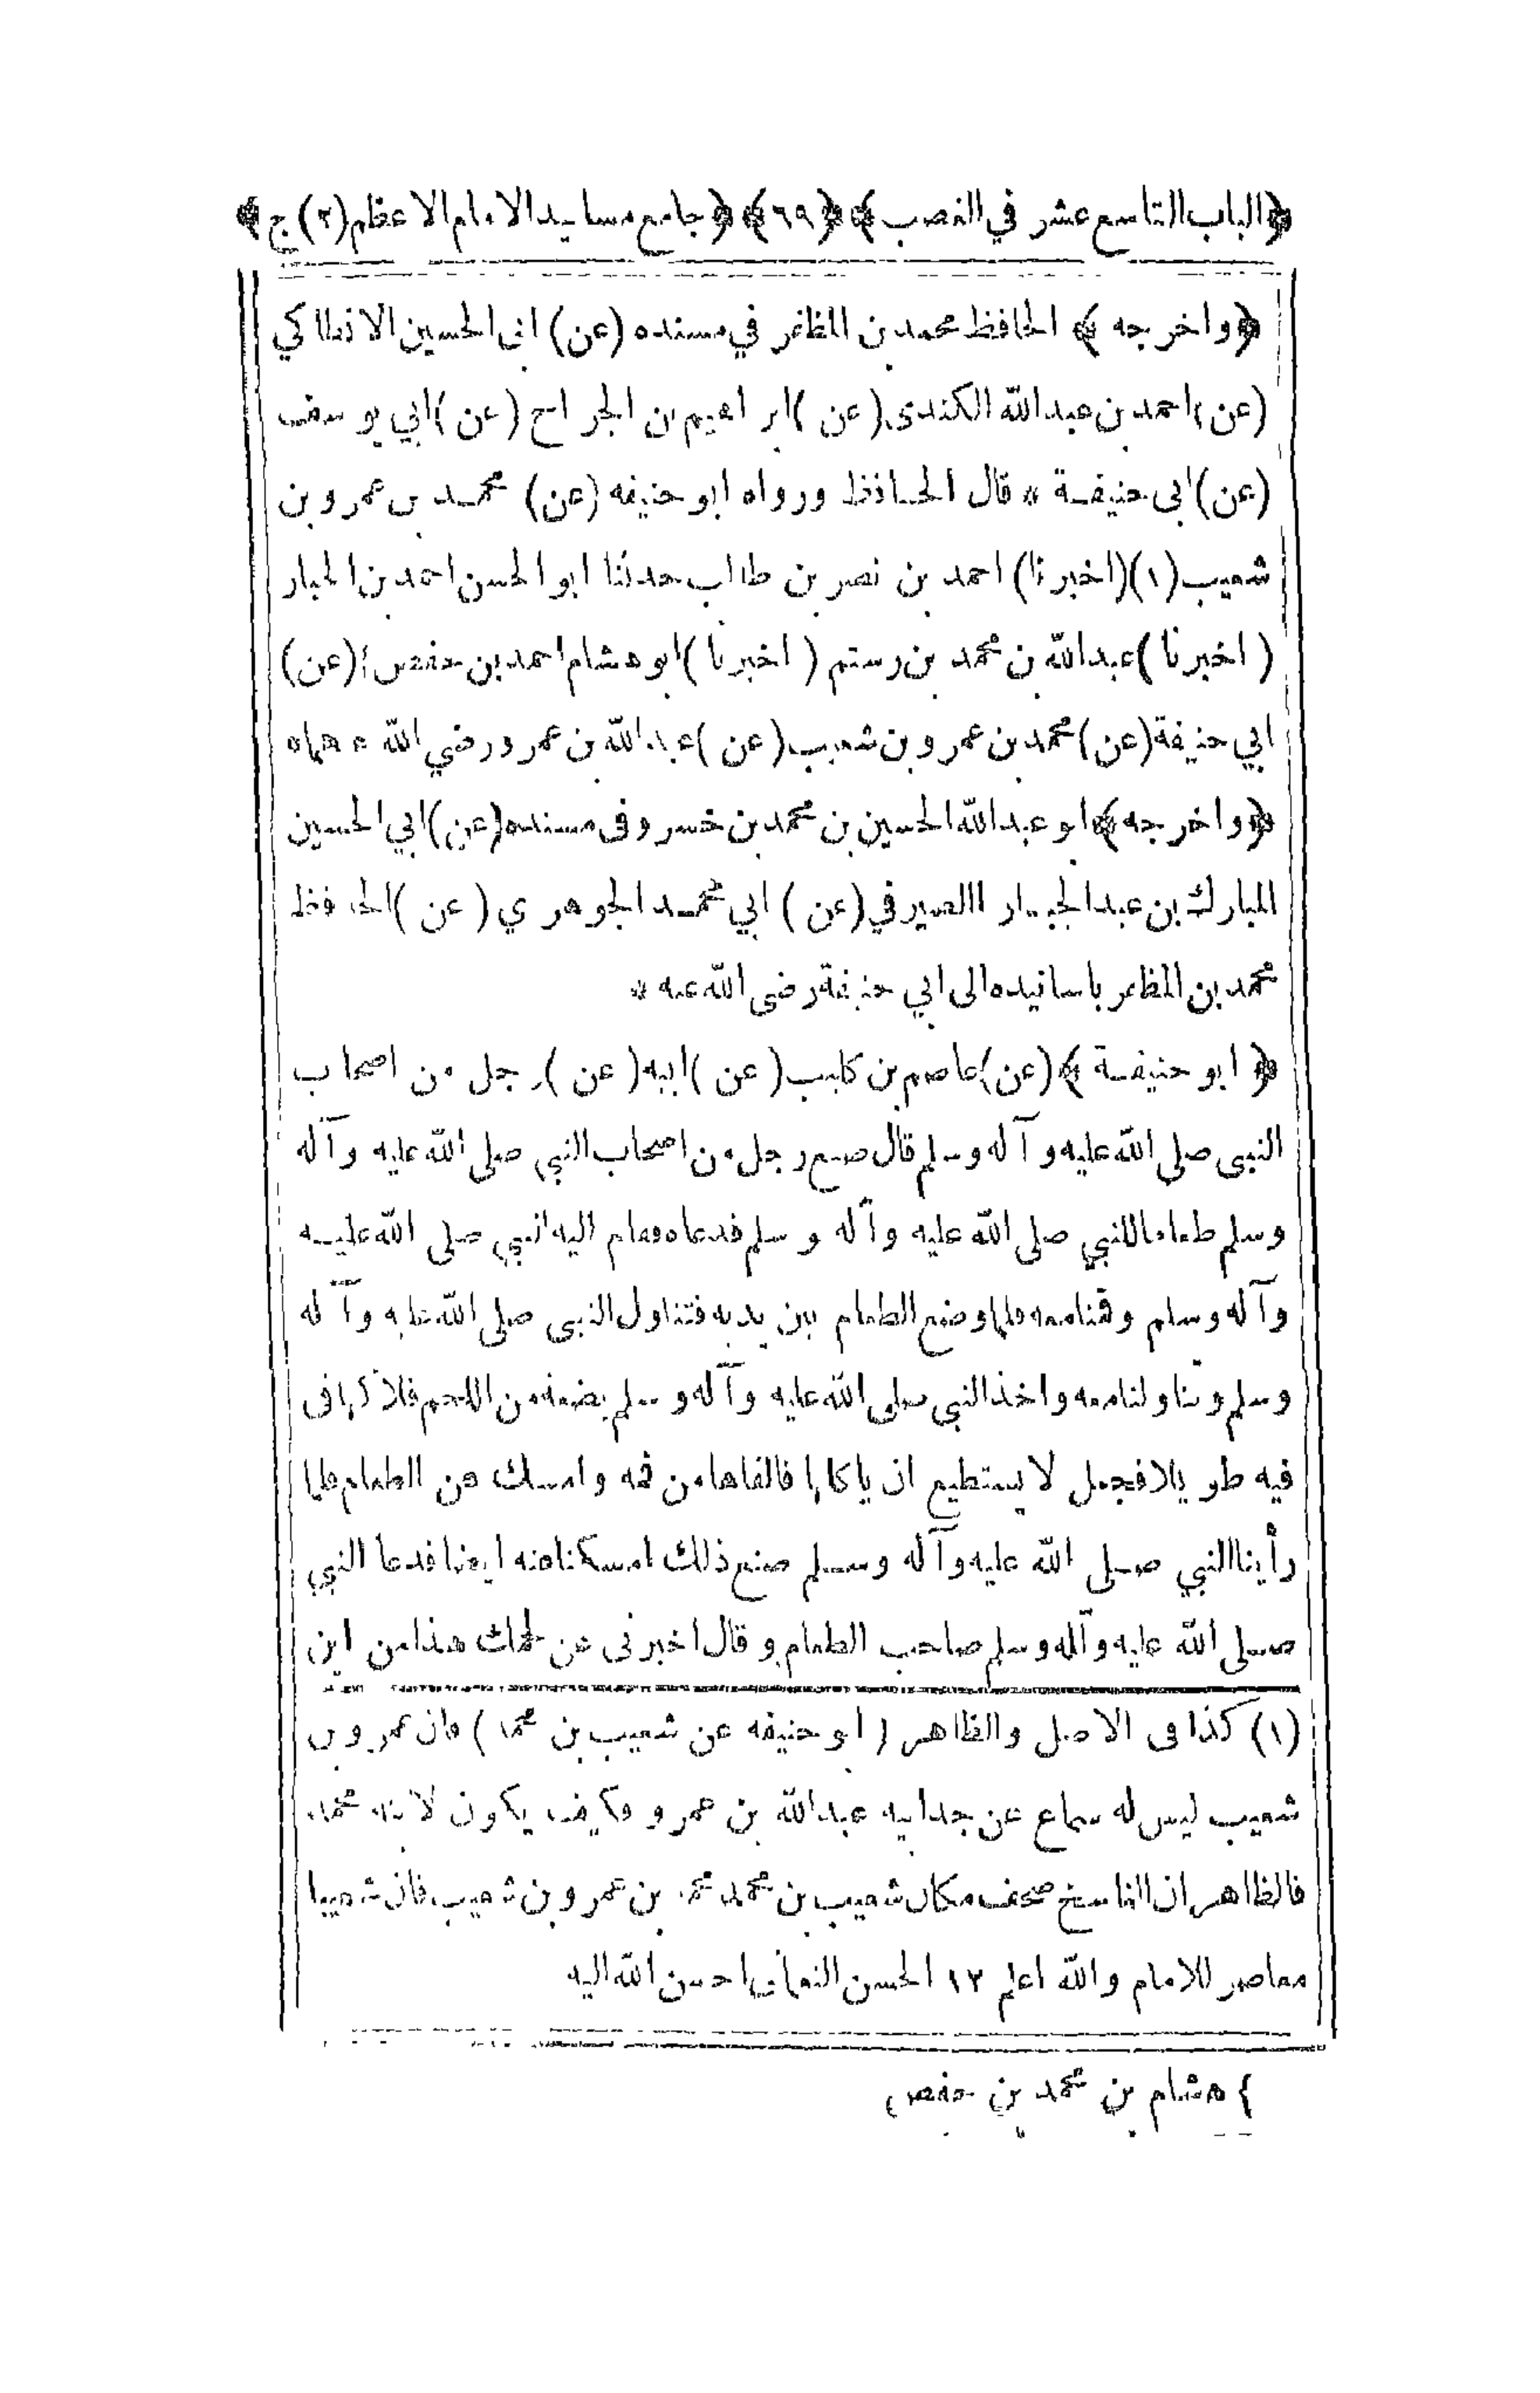 ﴿الباب التاسع عشر في الغصب﴾ ﴿٦٩﴾ ﴿جامع مسانيد الامام الاعظم (٢) ج﴾
﴿واخرجه﴾ الحافظ محمد بن المظفر في مسنده (عن) ابى الحسين الانطاكي
(عن) احمد بن عبدالله الكندى (عن) ابراهيم بن الجراح (عن) ابي يوسف
(عن) ابى حنيفة * قال الحافظ ورواه ابو حنيفه (عن) محمد بن عمرو بن
شعيب (١) (اخبرنا) احمد بن نصر بن طالب حدثنا ابو الحسن احمد بن
(اخبرنا) عبدالله بن محمد بن رستم (اخبرنا) ابو هشام احمد بن حفص } (عن)
ابي حنيفة (عن) محمد بن عمرو بن شعيب (عن) عبدالله بن عمرو رضي الله عنهما *
﴿واخرجه﴾ ابو عبدالله الحسين بن محمد بن خسرو فى مسنده (عن) ابي الحسين
المبارك بن عبد الجبار الصيرفي (عن) ابي محمد الجوهري (عن) الحافظ
محمد بن المظفر باسانيده الى ابي حنيفة رضى الله عنه *
﴿ابو حنيفة﴾ (عن) عاصم بن كليب (عن) ابيه (عن) رجل من اصحاب
النبى صلى الله عليه وآله وسلم قال صنع رجل من اصحاب النبي صلى الله عليه وآله
وسلم طعاما للنبي صلى الله عليه وآله وسلم فدعاه فقام اليه النبي صلى الله عليه
وآله وسلم وقمنا معه فلما وضع الطعام بين يديه فتناول النبى صلى الله عليه وآله
وسلم وتناولنا معه واخذ النبي صلى الله عليه وآله وسلم بضعة من اللحم فلاكها فى
فيه طويلا فجعل لا يستطيع ان ياكلها فالقاها من فمه وامسك عن الطعام فلما
رأينا النبي صلى الله عليه وآله وسلم صنع ذلك امسكنا عنه ايضا فدعا النبي
صلى الله عليه وآله وسلم صاحب الطعام و قال اخبرنى عن لحمك هذا من اين
(١) كذا فى الاصل والظاهر (ابو حنيفه عن شعيب بن محمد) فان عمرو بن
شعيب ليس له سماع عن جد ابيه عبدالله بن عمرو فكيف يكون لابنه محمد
فالظاهر ان الناسخ صحف مكان شعيب بن محمد محمد بن عمرو بن شعيب فان شعيبا
معاصر للامام والله اعلم ١٢ الحسن النعمانى احسن الله اليه
} هشام بن محمد بن حفص